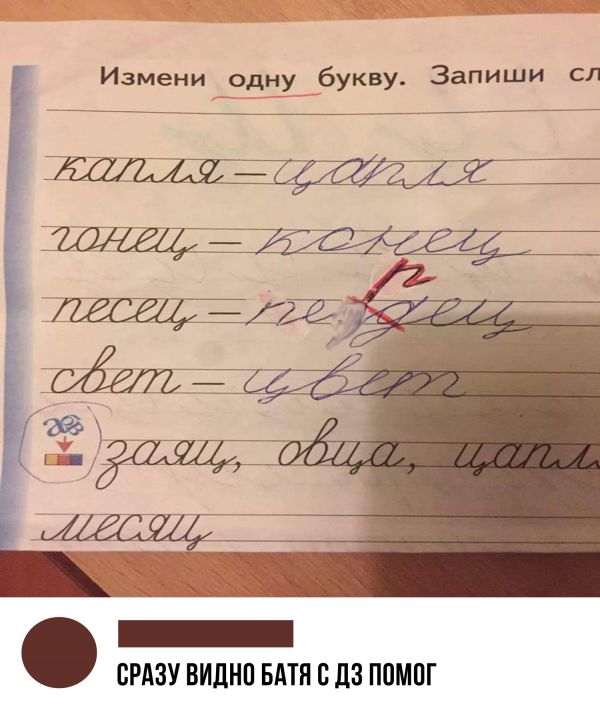 Измени одну букву. Запиши сл
капля – цапля
гонец – конец
р
песец – педец
свет – цвет
заяц, овца, цапл
месяц
СРАЗУ ВИДНО БАТЯ С ДЗ ПОМОГ